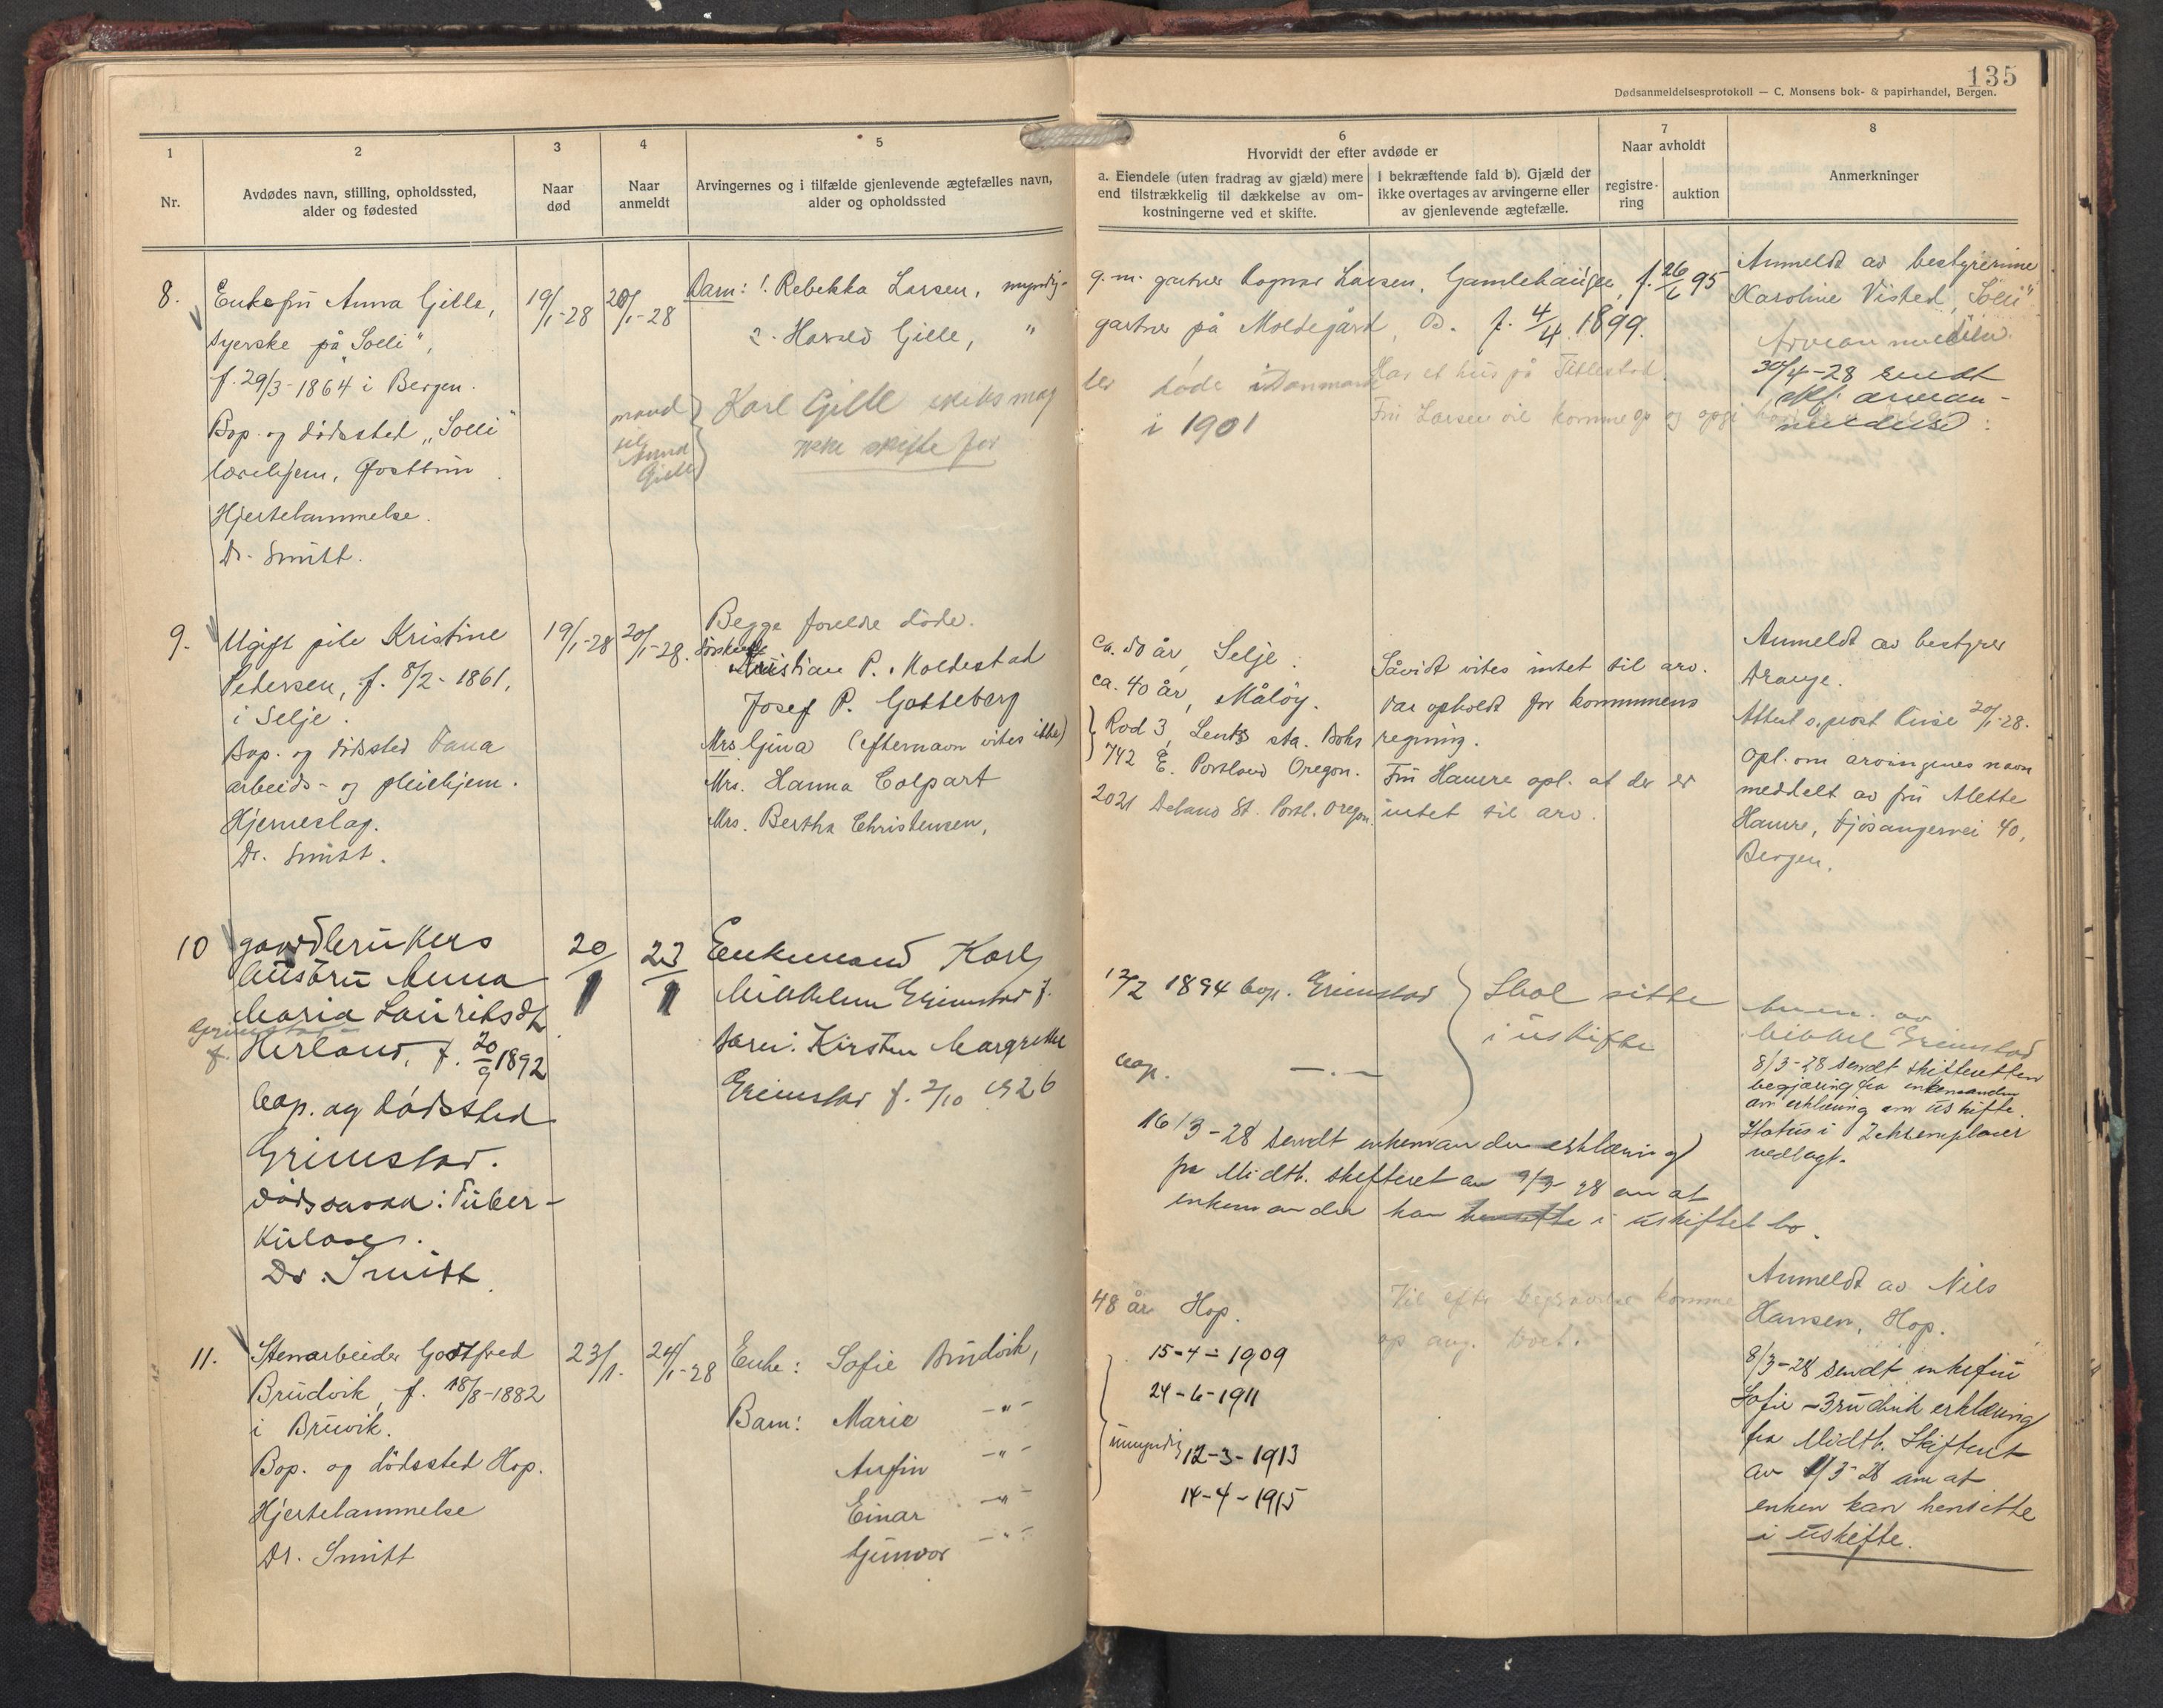 135
Dødsanmeldelsesprotokoll — C. Monsens bok- & papirhandel, Bergen.
1
Nr.
2
Avdødes navn, stilling, opholdssted,
alder og fødested
3
Naar
død
4
Naar
anmeldt
5
Arvingernes og i tilfælde gjenlevende ægtefælles navn,
alder og opholdssted
6
Hvorvidt der efter avdøde er
a. Eiendele (uten fradrag av gjæld) mere
end tilstrækkelig til dækkelse av om-
kostningerne ved et skifte.
I bekræftende fald b). Gjæld der
ikke overtages av arvingerne eller
av gjenlevende ægtefælle.
7
Naar avholdt
registre-
ring
auktion
8
Anmerkninger
8.
Enkefru Anna Gille,
syerske på "Solli",
f. 29/3-1864 i Bergen.
Bop. og dødssted „Solli"
lærehjem, Fjøsttun
Hjertelammelse.
Dr. Smitt.
19/1-28
20/1-28
Barn: 1. Rebekka Larsen, myndig
2. Harald Gille, "
mand
til
Anna
Gille
Karl Gille
ikke skifte for
g. m. gartner Ragnar Larsen, Gamlehaugen, f. 26/6 95
gartner på Moldegård, B. f. 4/4 1899.
døde i Danmark
i 1901
Har et hus på
Fru Larsen vil komme op og opgi
Anmeldt av bestyrerinne
Karoline Visted, "Solli"
30/4-28 sendt
skf. arvean-
meldelse
9.
Ugift pike Kristine
Petersen, f. 8/2-1861,
i Selje.
Bop. og dødssted Fana
arbeids- og pleiehjem.
Hjerneslag.
Dr. Smitt.
19/1-28
20/1-28.
Begge foreldre døde.
Søskende
Kristian P. Moldestad
Josef P. Gotteberg
Mrs Gina (efternavn vites ikke)
Mrs. Hanna Colpart
Mrs. Bertha Christensen,
ca. 50 år, Selje.
ca. 40 år, Måløy.
Rod 3, Lents sta. Boks
742 E. Portland Oregon.
2021 Deland St. Portl. Oregon.
Såvidt vites intet til arv.
Var opholdt for kommunens
regning.
Fru Hamre opl. at der er
intet til arv.
Anmeldt av bestyrer
Drange.
Attest s. prost Kruse 20/1-28.
Opl. om arvingenes navn
meddelt av fru Alette
Hamre, Fjøsangervei 40,
Bergen.
10
gaardbrukers
hustru Anna
Maria Lauritsdt.
Grimstad
f. Herland, f. 20/9 1892
bop. og dødssted
Grimstad.
Dødsaarsak: Tuber-
kulose.
Dr. Smitt
20/1
23/1
Enkemand Karl
Mikkelsen Grimstad f.
barn: Kirsten Margrethe
Grimstad f. 2/10 1926
12/2 1894 bop. Grimstad
bop. —.—
Skal sitte
i uskifte
16/3-28 sendt enkemanden erklæring
fra Midth. skifteret av 9/3-28 om at
enkemanden kan hensitte i uskiftet bo.
Anm. av
Mikkel Grimstad
8/3-28 sendt skifteretten
begjæring fra enkemanden
om erklæring om uskifte.
Status i 2 eksemplarer
vedlagt.
11.
Stenarbeider Gottfred
Brudvik, f. 18/8-1882
i Bruvik.
Bop. og dødssted Hop.
Hjertelammelse
Dr. Smitt
23/1.
24/1-28
Enke: Sofie Brudvik,
Barn: Marie —"—
Anfin —"—
Einar —"—
Gunvor —"—
48 år Hop.
15-4-1909
24-6-1911
umyndig 12-3-1913
14-4-1915
Vil efter begravelse komme
op ang. boet.
Anmeldt av Nils
Hansen, Hop.
8/3-28 sendt enkefru
Sofie Brudvik erklæring
fra Midth. Skifteret
av 1/3-28 om at
enken kan hensitte
i uskifte.